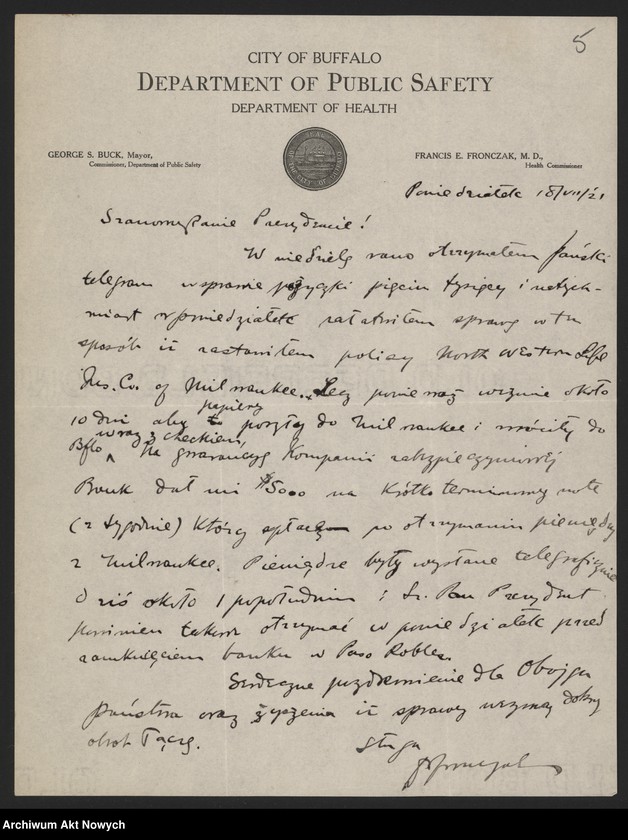 5
CITY OF BUFFALO
DEPARTMENT OF PUBLIC SAFETY
DEPARTMENT OF HEALTH
GEORGE S. BUCK, Mayor,
Commissioner, Department of Public Safety
FRANCIS E. FRONCZAK, M. D.,
Health Commissioner
Poniedziałek 18/VII/21
Szanowny Panie Prezydencie!
W niedzielę rano otrzymałem Pański
telegram w sprawie pożyczki pięciu tysięcy i natych-
miast w poniedziałek załatwiłem sprawę w ten
sposób iż zastawiłem policy North Western Life
Ins. Co. of Milwaukee. Lecz ponieważ weźmie około
10 dni aby papiery poszły do Milwaukee i wróciły do
Bflo wraz z checkiem, na gwarancyę Kompanii zabezpieczyniowej
Bank dał mi $5000 na krótko terminowy note
(2 tygodnie) który spłacę po otrzymaniu pieniędzy
z Milwaukee. Pieniądze były wysłane telegraficznie
Dziś około 1 popołudniu i Sz. Pan Prezydent
powinien takowe otrzymać w poniedziałek przed
zamknięciem banku w Paso Robles.
Serdeczne pozdrowienie dla Obojga
Państwa oraz życzenia iż sprawy wezmą dobry
obrót łączę.
sługa
Archiwum Akt Nowych